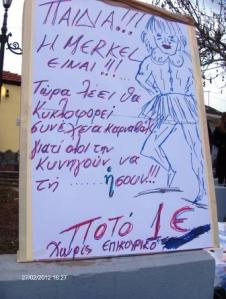 ΠΑΙΔΙΑ...!!
Η MERKEL
ΕΙΝΑΙ!!!...
Τώρα λέει θα
Κυκλοφορεί
συνέχεια καρναβάλ
γιατί όλοι την
Κυνηγούν να
τή ..... ήσουν!!!
ΠΟΤΟ 1€
Χωρίς ΕΠΙΚΟΥΡΙΚΟ
27/02/2012 16:27